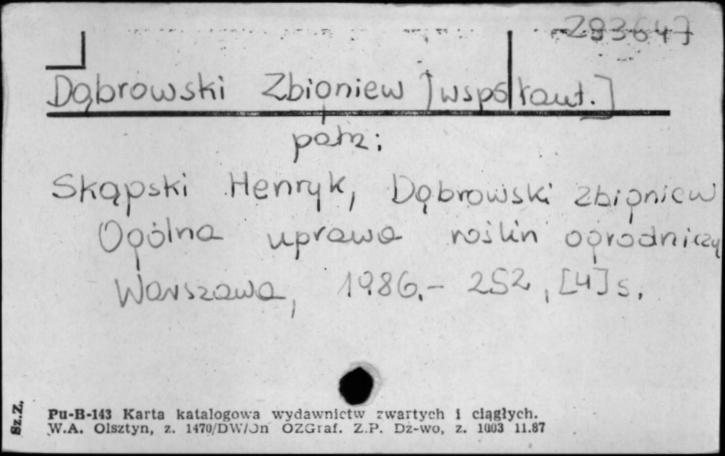 293647
Dąbrowski Zbigniew [współaut.]
patrz:
Skąpski Henryk, Dąbrowski Zbigniew
Ogólna uprawa roślin ogrodniczy
Warszawa, 1986.- 252, [4] s.
Sz.Z.
Pu-B-143 Karta katalogowa wydawnictw zwartych i ciągłych.
W.A. Olsztyn, z. 1470/DW/On OZGraf. Z.P. Dź-wo, z. 1003 11.87